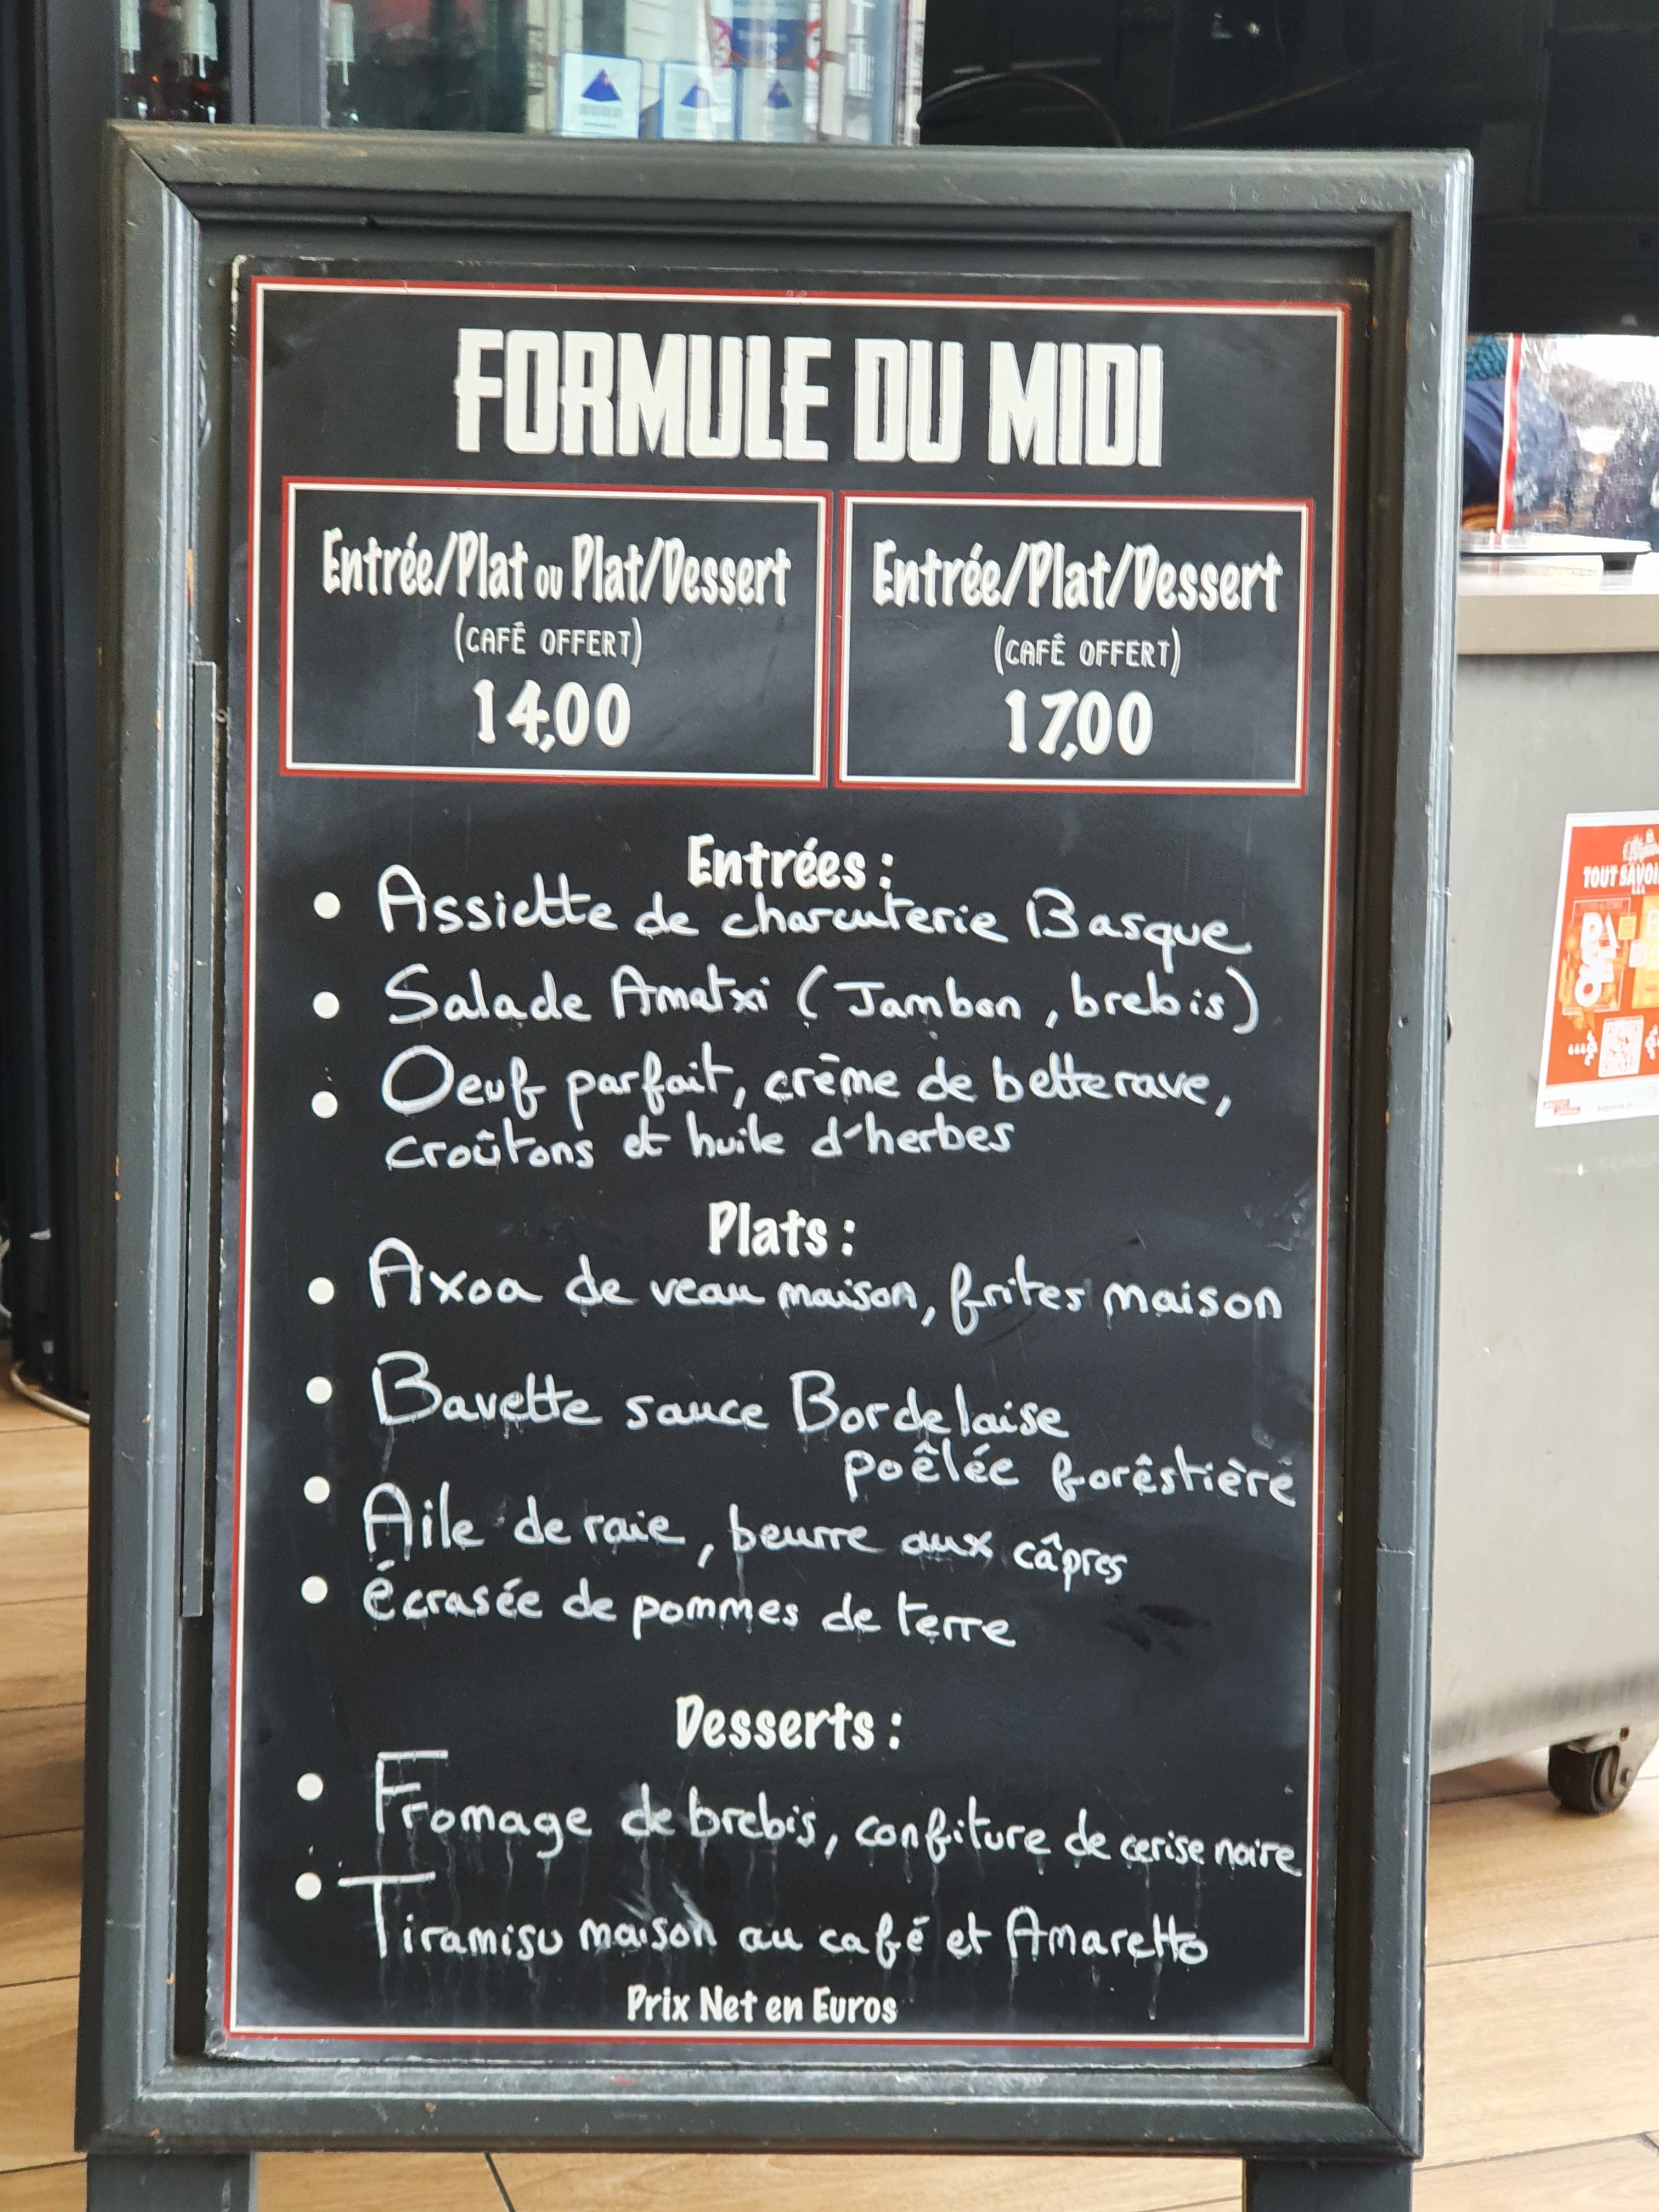 FORMULE DU MIDI
Entrée/Plat ou Plat/Dessert
(CAFÉ OFFERT)
14,00
Entrée/Plat/Dessert
(CAFÉ OFFERT)
17,00
Entrées :
• Assiette de charcuterie Basque
• Salade Amatxi (Jambon, brebis)
• Oeuf parfait, crème de betterave,
croûtons et huile d'herbes
Plats :
• Axoa de veau maison, frites maison
• Bavette sauce Bordelaise
poêlée forêstière
• Aile de raie, beurre aux câpres
• écrasée de pommes de terre
Desserts :
• Fromage de brebis, confiture de cerise noire
• Tiramisu maison au café et Amaretto
Prix Net en Euros
TOUT SAVOI